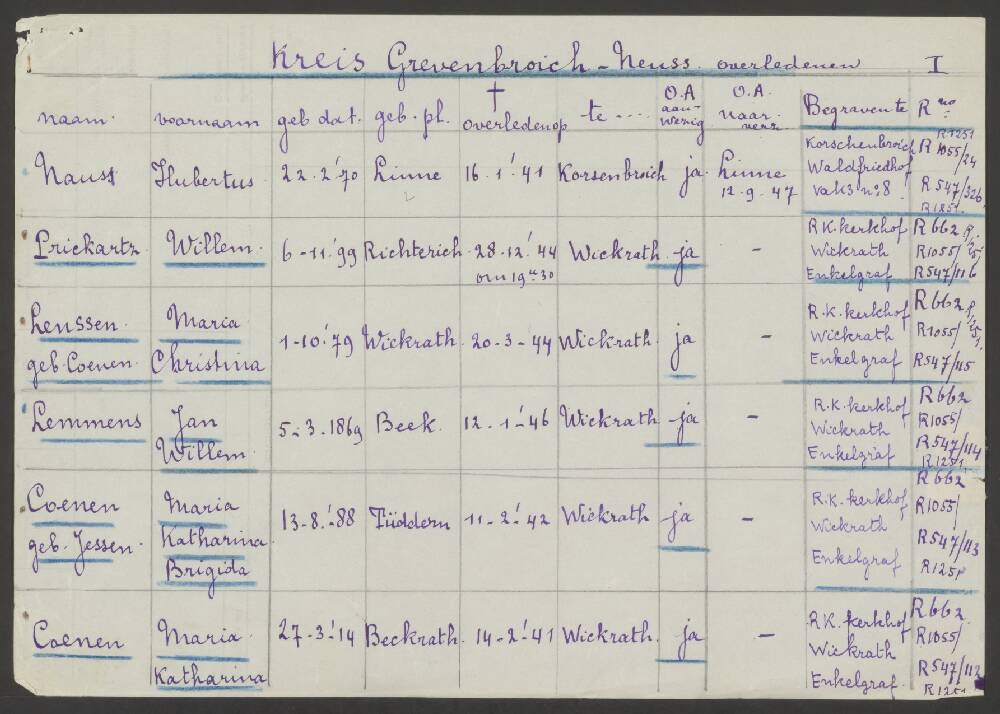 Kreis Grevenbroich - Neuss. overledenen I
naam. voornaam geb dat. geb. pl. † overleden op te .... O.A aan-wezig O.A. naar verz. Begraven te R no
Naust Hubertus 22.2.'70 Linne 16.1.'41 Korsenbroich ja. Linne 12-9-47 Korschenbroich Waldfriedhof vak 3 no: 8 R1251 R1055/24 R547/326 R1251.
Prickartz Willem. 6-11.'99 Richterich 28-12.'44 om 19 u 30 Wickrath ja - R.K. kerkhof Wickrath Enkelgraf R662 R1055/ R547/116
Lenssen geb. Coenen. Maria Christina 1-10.'79 Wickrath. 20-3-44 Wickrath. ja - R.K. kerkhof Wickrath Enkelgraf R662 R1055/ R547/115
Lemmens Jan Willem. 5-3.1869 Beek. 12-1-'46 Wickrath ja - R.K. kerkhof Wickrath Enkelgraf R662 R1055/ R547/114 R1251.
Coenen geb. Jessen. Maria Katharina Brigida 13-8.'88 Tüddern 11-2-'42 Wickrath ja - R.K. kerkhof Wickrath Enkelgraf R662 R1055/ R547/113 R1251
Coenen Maria Katharina 27-3-'14 Beckrath. 14-2-'41 Wickrath. ja - R.K. kerkhof Wickrath Enkelgraf. R662. R1055/ R547/112 R1251